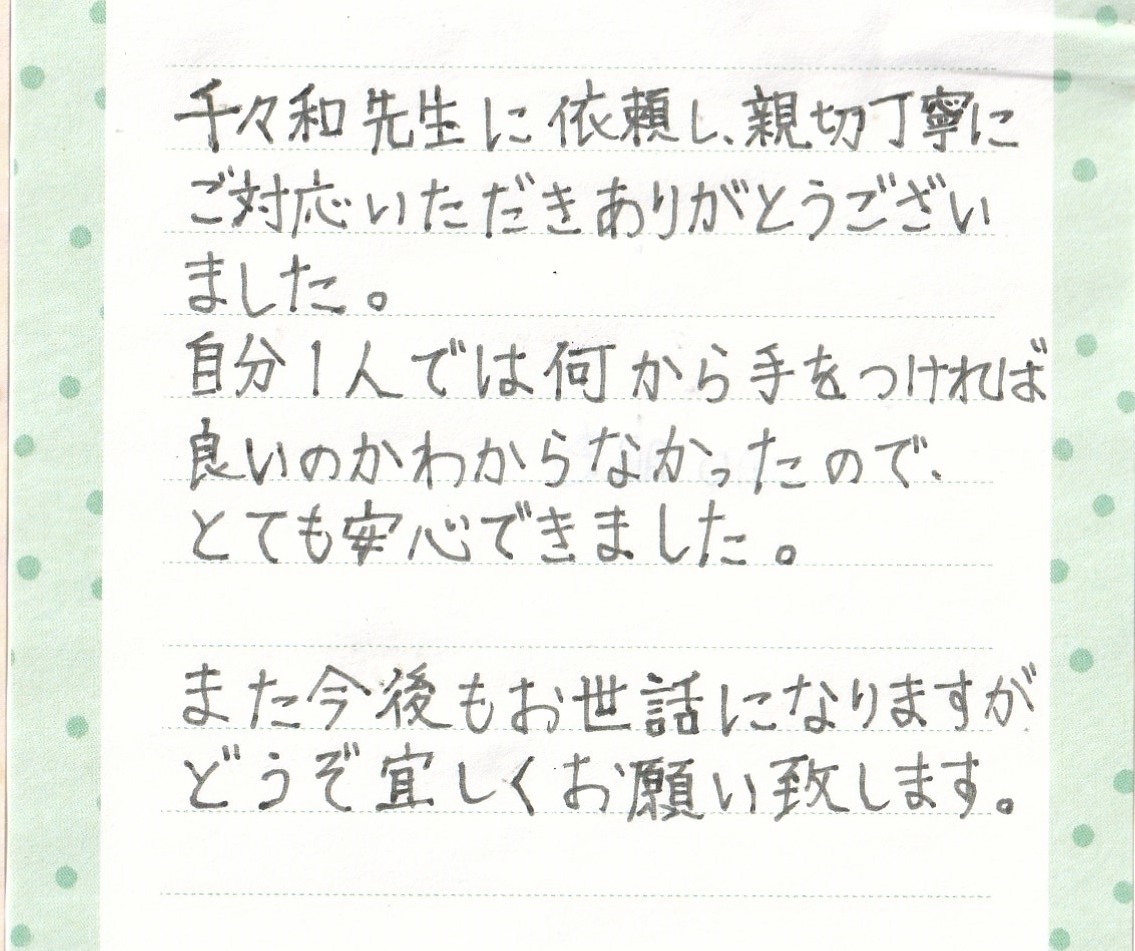 千々和先生に依頼し、親切丁寧に
ご対応いただきありがとうござい
ました。
自分1人では何から手をつければ
良いのかわからなかったので、
とても安心できました。
また今後もお世話になりますが
どうぞ宜しくお願い致します。